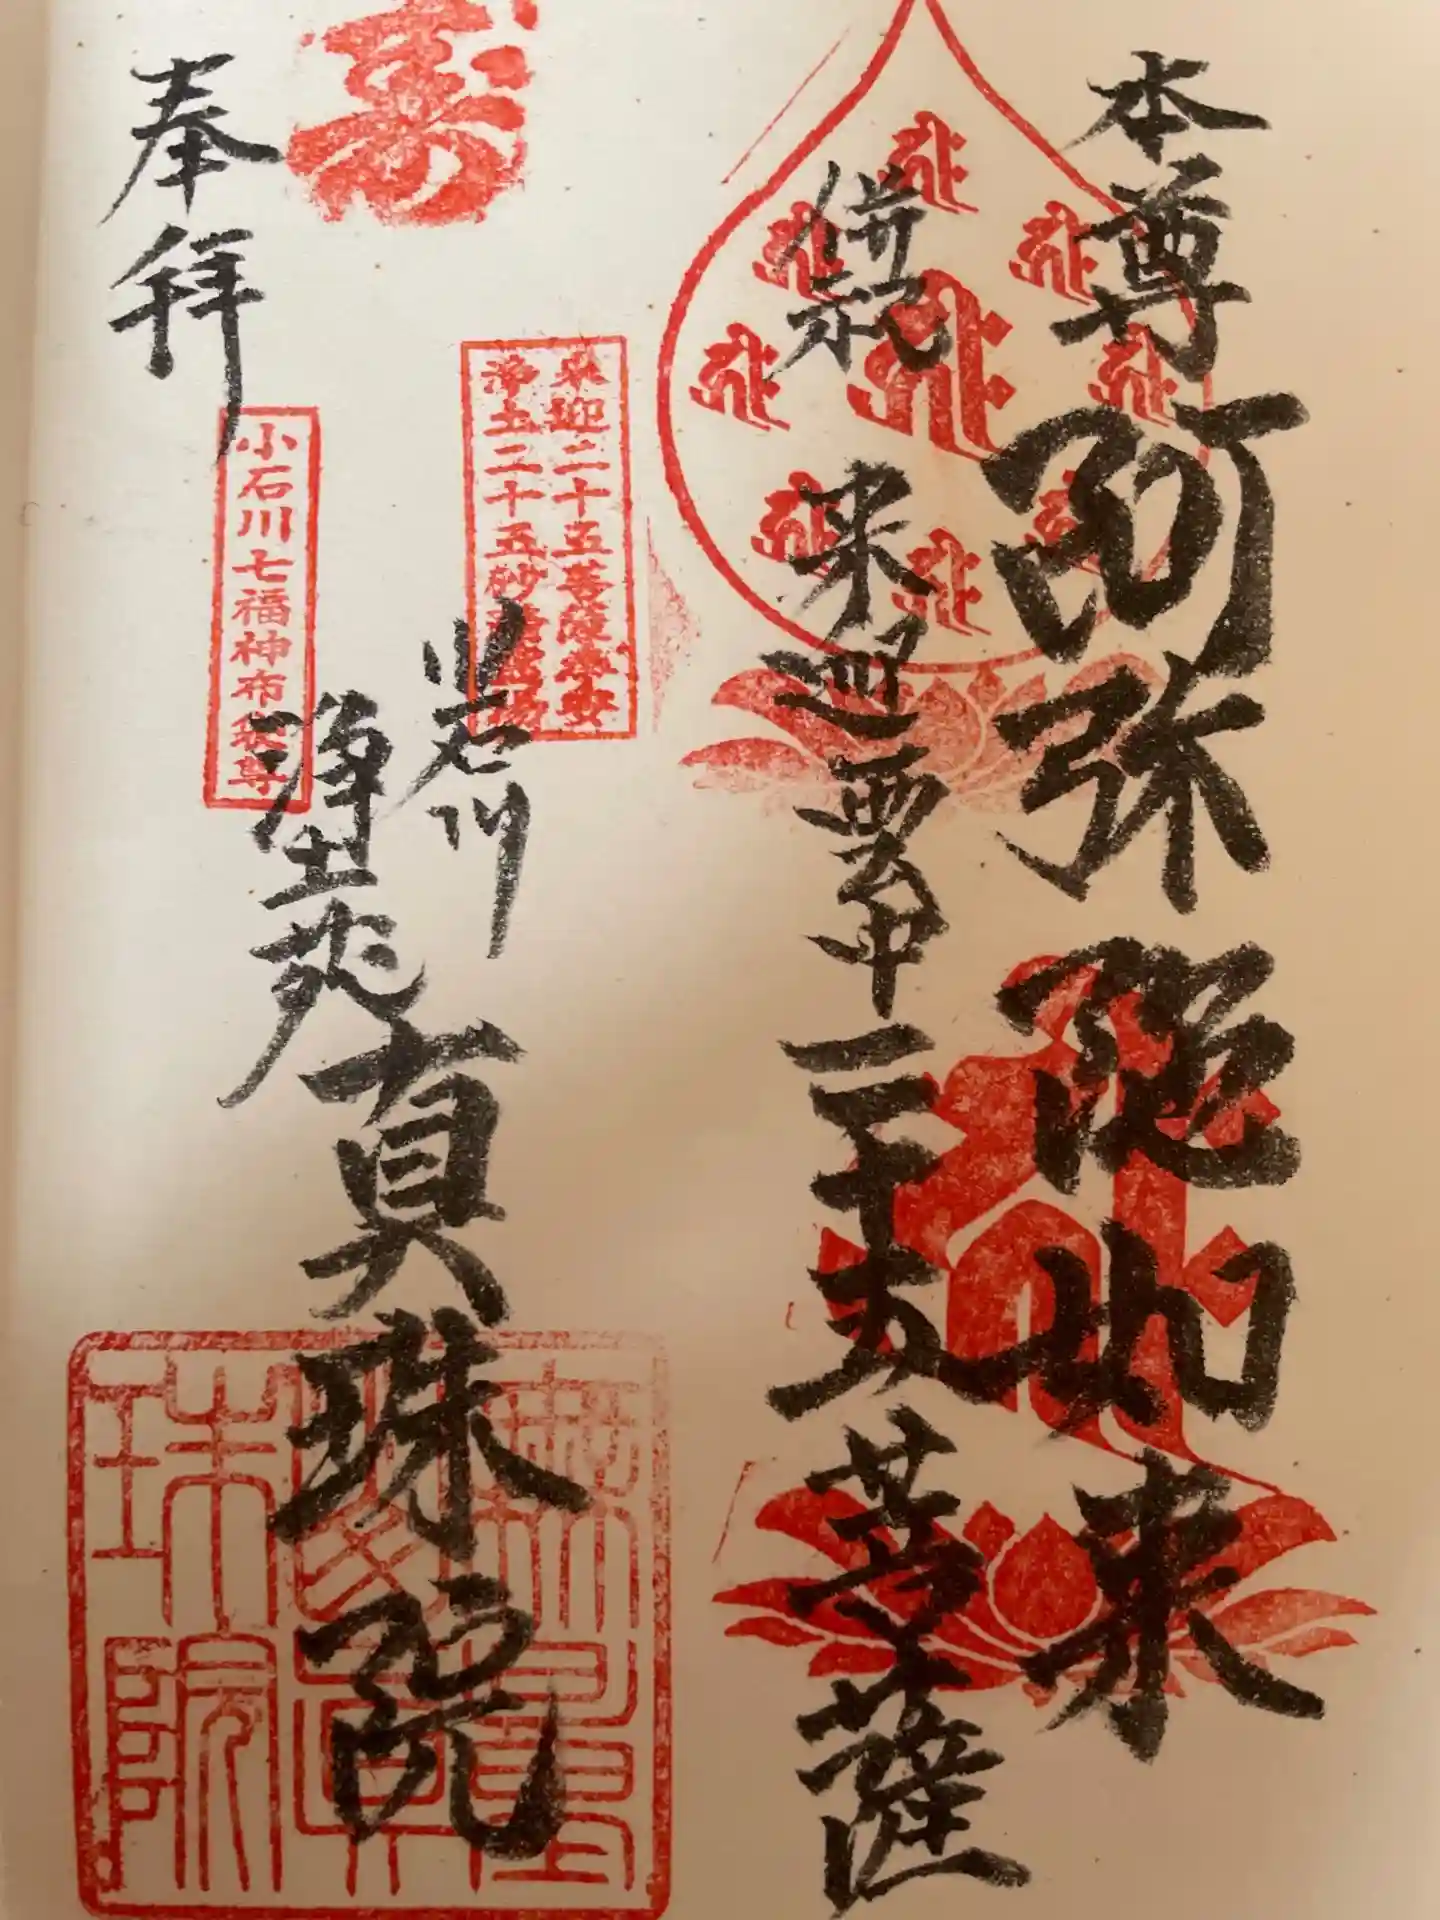 本尊 阿弥陀如来
併祀 来迎雲中二十五菩薩
来迎二十五菩薩奉安
浄土二十五砂
小石川
浄土苑 真珠院
寿
奉拝
小石川七福神布袋尊
無量
真
珠院